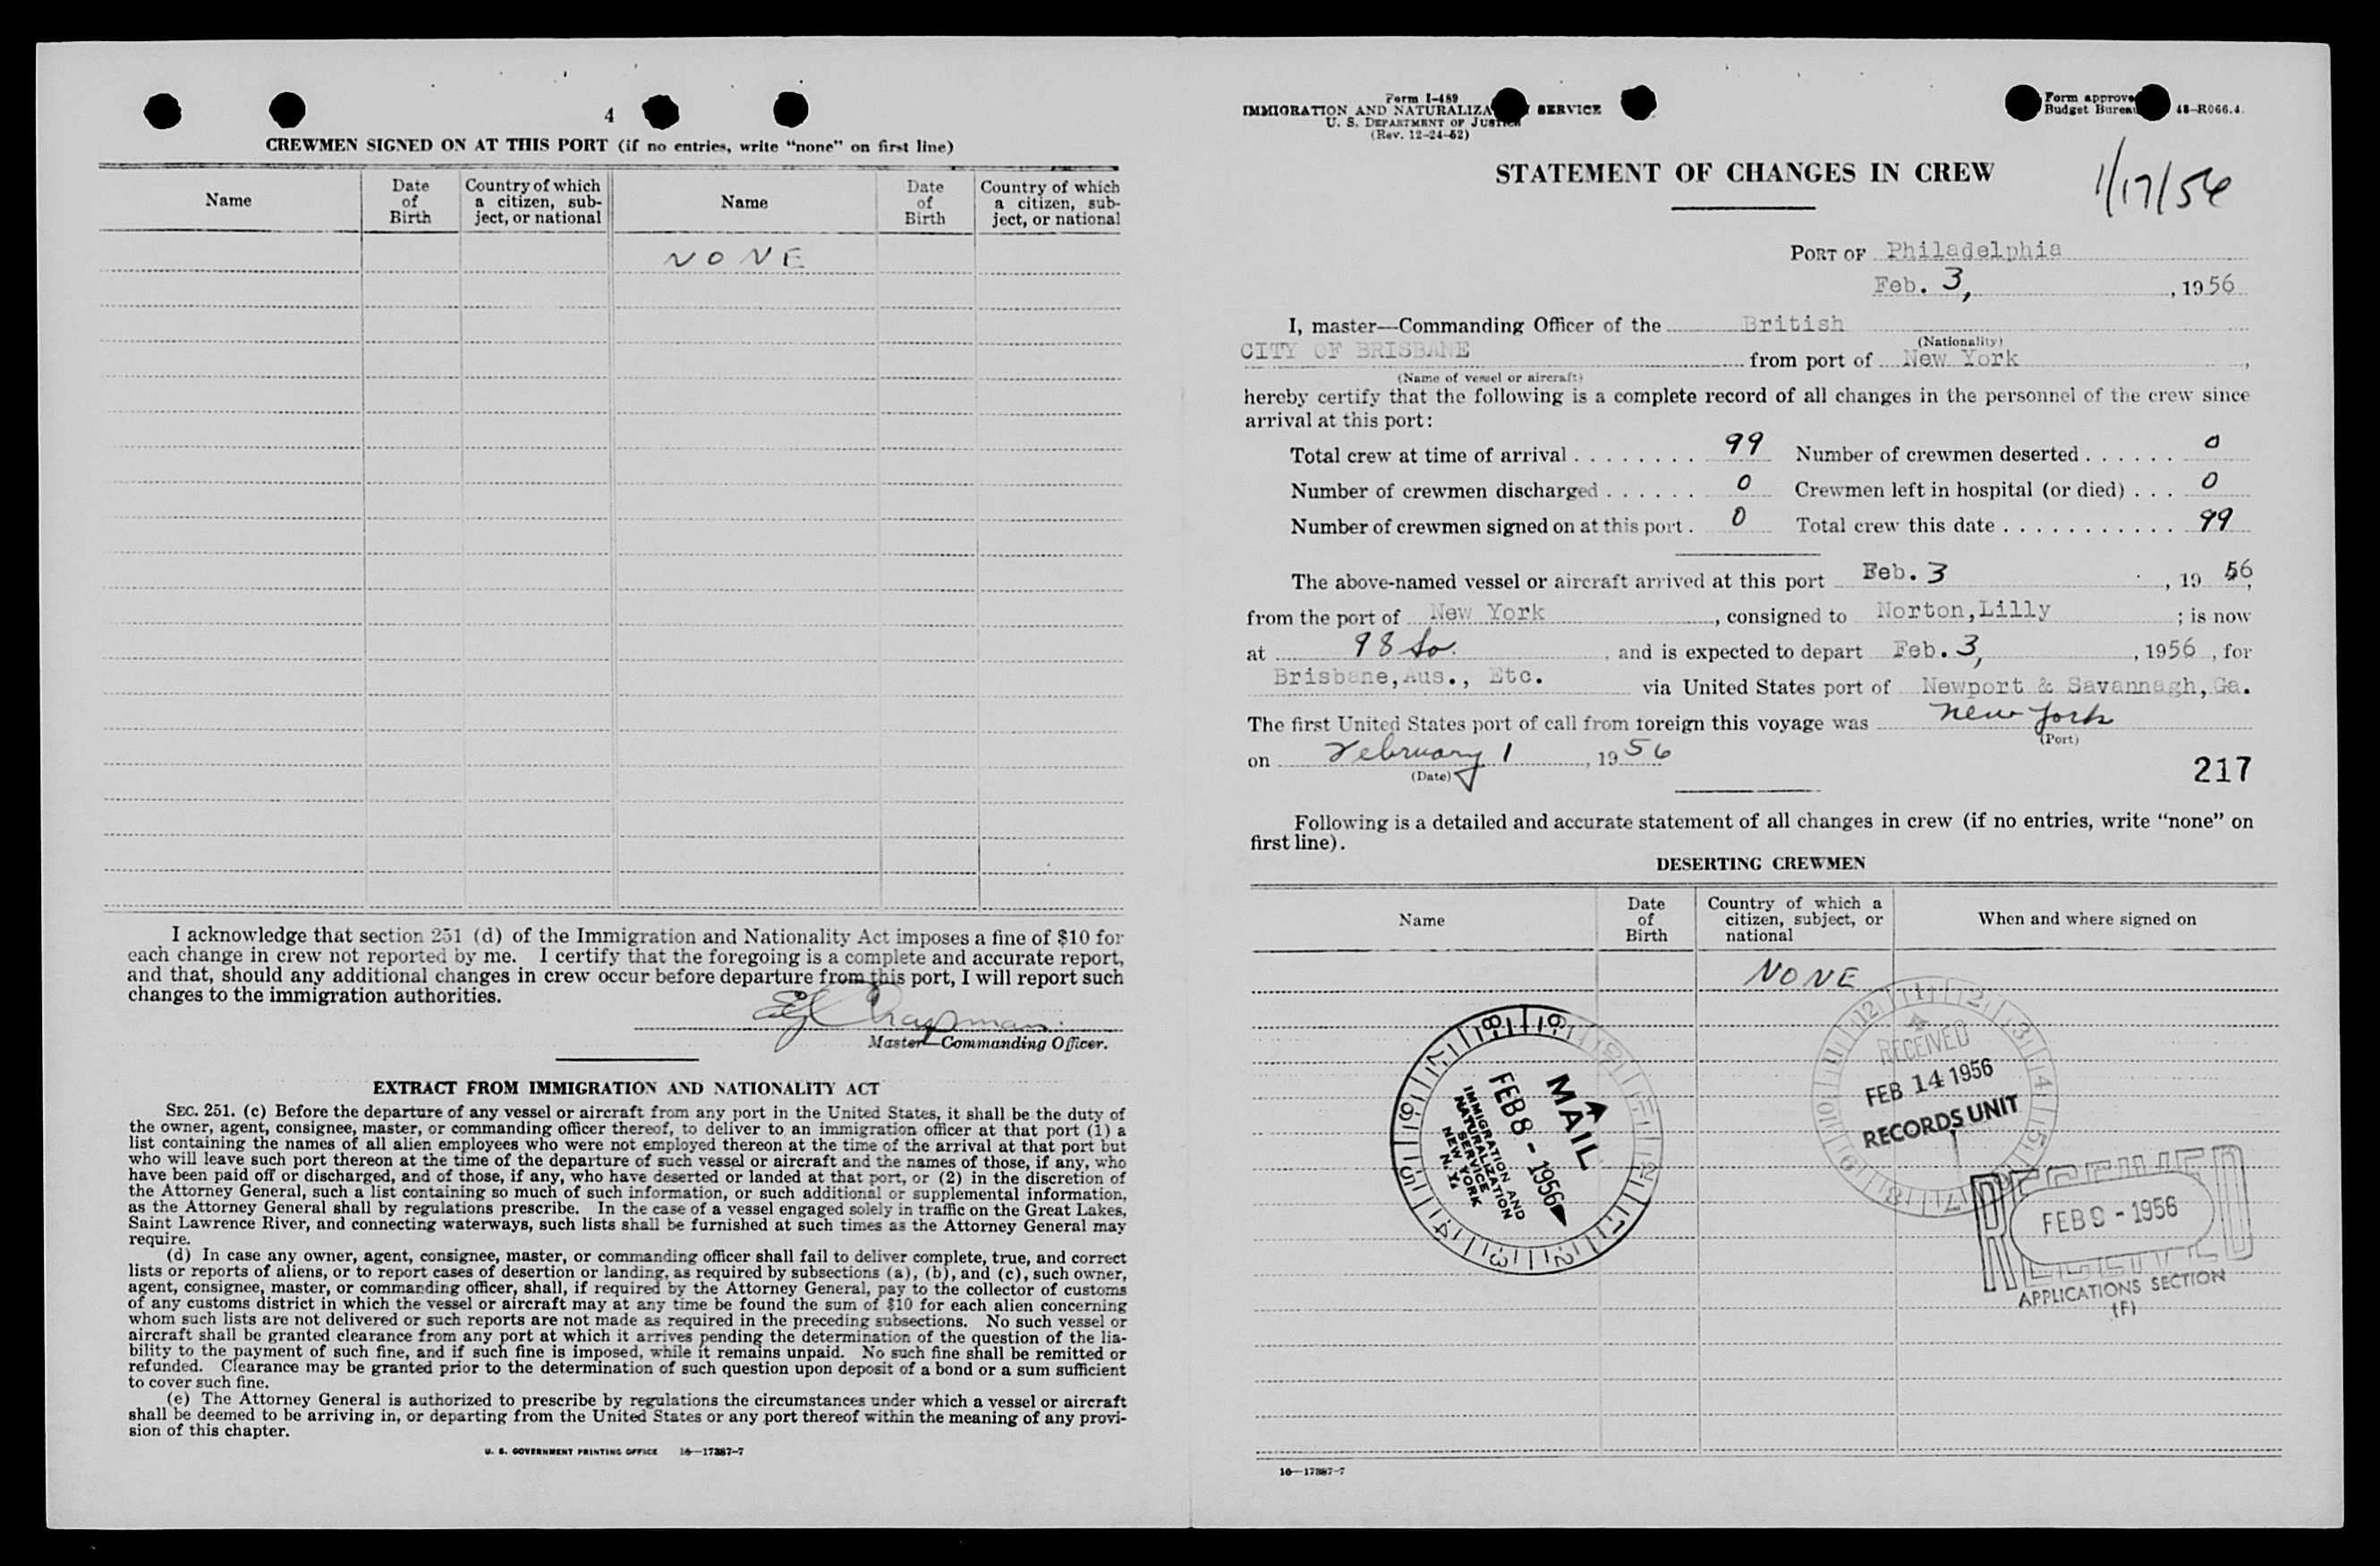 4
CREWMEN SIGNED ON AT THIS PORT (if no entries, write “none” on first line)
Name Date of Birth Country of which a citizen, sub-ject, or national Name Date of Birth Country of which a citizen, sub-ject, or national
NONE
I acknowledge that section 251 (d) of the Immigration and Nationality Act imposes a fine of $10 for
each change in crew not reported by me. I certify that the foregoing is a complete and accurate report,
and that, should any additional changes in crew occur before departure from this port, I will report such
changes to the immigration authorities.
Chapman
Master—Commanding Officer.
EXTRACT FROM IMMIGRATION AND NATIONALITY ACT
SEC. 251. (c) Before the departure of any vessel or aircraft from any port in the United States, it shall be the duty of
the owner, agent, consignee, master, or commanding officer thereof, to deliver to an immigration officer at that port (1) a
list containing the names of all alien employees who were not employed thereon at the time of the arrival at that port but
who will leave such port thereon at the time of the departure of such vessel or aircraft and the names of those, if any, who
have been paid off or discharged, and of those, if any, who have deserted or landed at that port, or (2) in the discretion of
the Attorney General, such a list containing so much of such information, or such additional or supplemental information,
as the Attorney General shall by regulations prescribe. In the case of a vessel engaged solely in traffic on the Great Lakes,
Saint Lawrence River, and connecting waterways, such lists shall be furnished at such times as the Attorney General may
require.
(d) In case any owner, agent, consignee, master, or commanding officer shall fail to deliver complete, true, and correct
lists or reports of aliens, or to report cases of desertion or landing, as required by subsections (a), (b), and (c), such owner,
agent, consignee, master, or commanding officer, shall, if required by the Attorney General, pay to the collector of customs
of any customs district in which the vessel or aircraft may at any time be found the sum of $10 for each alien concerning
whom such lists are not delivered or such reports are not made as required in the preceding subsections. No such vessel or
aircraft shall be granted clearance from any port at which it arrives pending the determination of the question of the lia-
bility to the payment of such fine, and if such fine is imposed, while it remains unpaid. No such fine shall be remitted or
refunded. Clearance may be granted prior to the determination of such question upon deposit of a bond or a sum sufficient
to cover such fine.
(e) The Attorney General is authorized to prescribe by regulations the circumstances under which a vessel or aircraft
shall be deemed to be arriving in, or departing from the United States or any port thereof within the meaning of any provi-
sion of this chapter.
U. S. GOVERNMENT PRINTING OFFICE 16—17387-7
Form I-489
IMMIGRATION AND NATURALIZA SERVICE
U. S. DEPARTMENT OF JUSTICE
(Rev. 12-24-52)
Form approve
Budget Bureau 43-R066.4.
STATEMENT OF CHANGES IN CREW
1/17/56
PORT OF Philadelphia
Feb. 3, , 1956
I, master—Commanding Officer of the British
(Nationality)
CITY OF BRISBANE from port of New York ,
(Name of vessel or aircraft)
hereby certify that the following is a complete record of all changes in the personnel of the crew since
arrival at this port:
Total crew at time of arrival . . . . . . . . 99 Number of crewmen deserted . . . . . . 0
Number of crewmen discharged . . . . . . 0 Crewmen left in hospital (or died) . . . 0
Number of crewmen signed on at this port . 0 Total crew this date . . . . . . . . . . . 99
The above-named vessel or aircraft arrived at this port Feb. 3 , 19 56,
from the port of New York , consigned to Norton,Lilly ; is now
at 98 So. , and is expected to depart Feb. 3, , 1956 , for
Brisbane,Aus., Etc. via United States port of Newport & Savannagh, Ga.
The first United States port of call from foreign this voyage was New York
(Port)
on February 1 , 19 56
(Date)
217
Following is a detailed and accurate statement of all changes in crew (if no entries, write “none” on
first line).
DESERTING CREWMEN
Name Date of Birth Country of which a citizen, subject, or national When and where signed on
NONE
MAIL
FEB 8 - 1956
IMMIGRATION AND
NATURALIZATION
SERVICE
NEW YORK
N.Y.
RECEIVED
FEB 14 1956
RECORDS UNIT
RECEIVED
FEB 9 - 1956
APPLICATIONS SECTION
(F)
16—17387-7